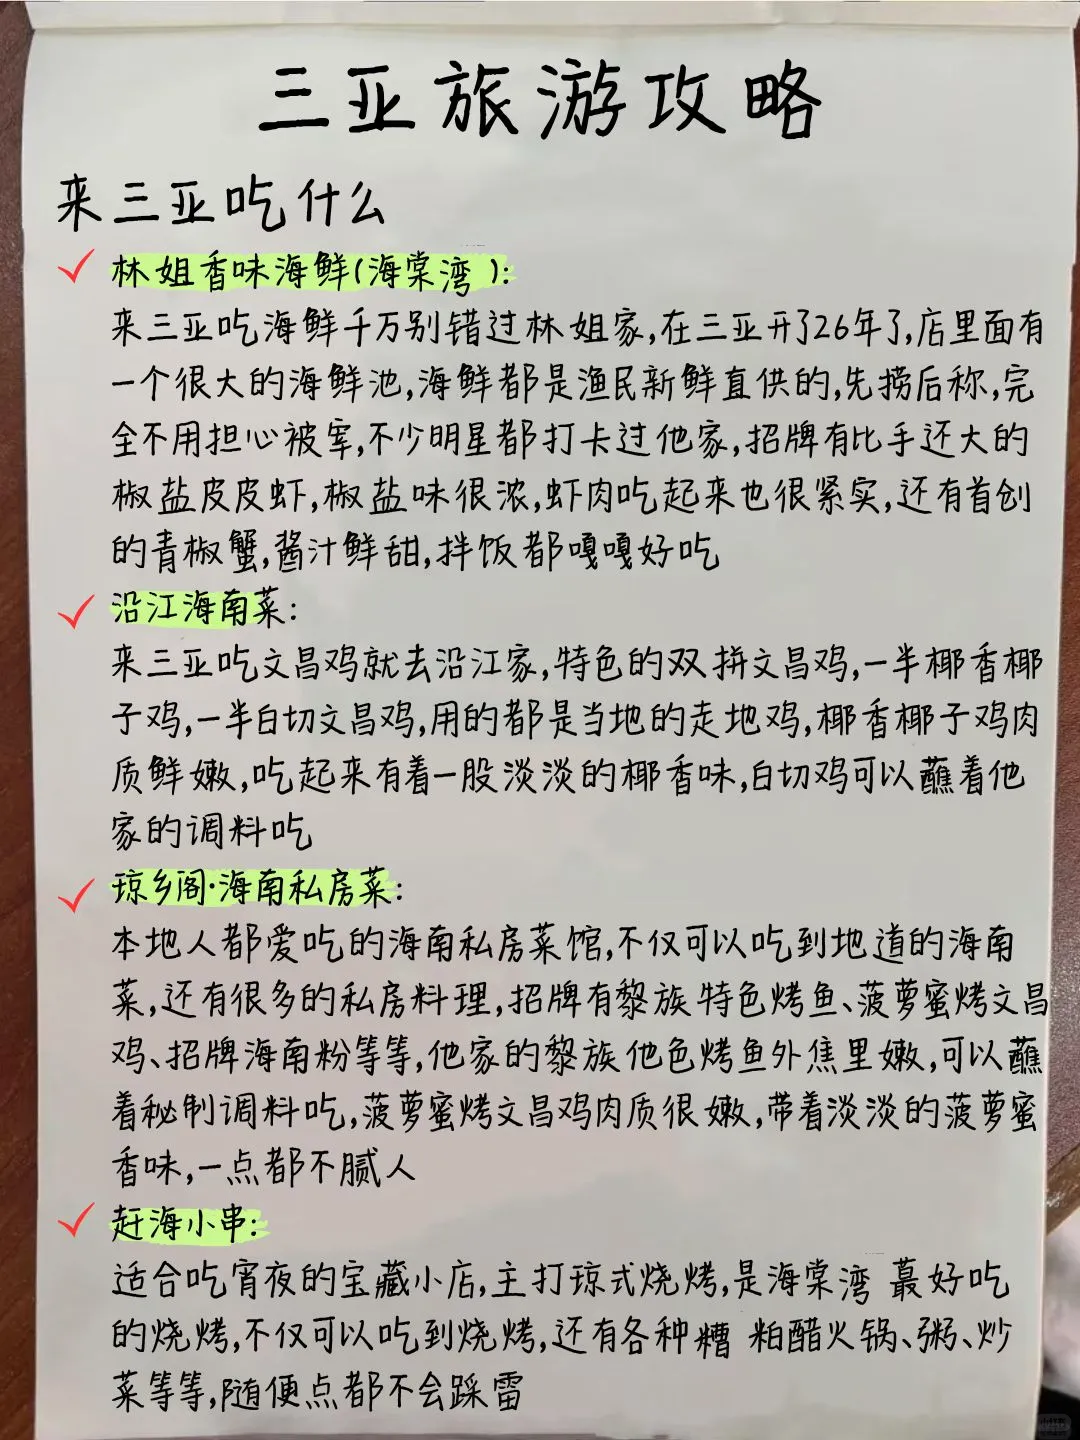 三亚旅游攻略
来三亚吃什么
林姐香味海鲜(海棠湾):
来三亚吃海鲜千万别错过林姐家,在三亚开了26年了,店里面有
一个很大的海鲜池,海鲜都是渔民新鲜直供的,先捞后称,完
全不用担心被宰,不少明星都打卡过他家,招牌有比手还大的
椒盐皮皮虾,椒盐味很浓,虾肉吃起来也很紧实,还有首创
的青椒蟹,酱汁鲜甜,拌饭都嘎嘎好吃
沿江海南菜:
来三亚吃文昌鸡就去沿江家,特色的双拼文昌鸡,一半椰香椰
子鸡,一半白切文昌鸡,用的都是当地的走地鸡,椰香椰子鸡肉
质鲜嫩,吃起来有着一股淡淡的椰香味,白切鸡可以蘸着他
家的调料吃
琼乡阁·海南私房菜:
本地人都爱吃的海南私房菜馆,不仅可以吃到地道的海南
菜,还有很多的私房料理,招牌有黎族特色烤鱼、菠萝蜜烤文昌
鸡、招牌海南粉等等,他家的黎族他色烤鱼外焦里嫩,可以蘸
着秘制调料吃,菠萝蜜烤文昌鸡肉质很嫩,带着淡淡的菠萝蜜
香味,一点都不腻人
赶海小串:
适合吃宵夜的宝藏小店,主打琼式烧烤,是海棠湾 蕞好吃
的烧烤,不仅可以吃到烧烤,还有各种糟 粕醋火锅、粥、炒
菜等等,随便点都不会踩雷